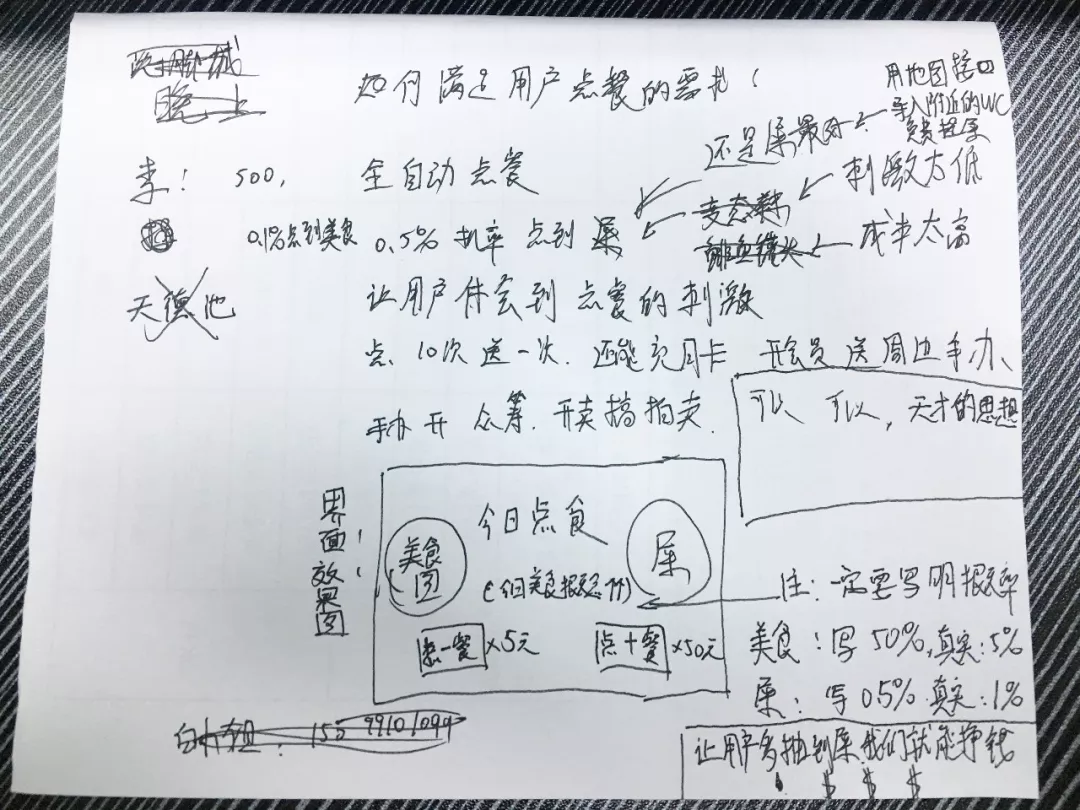 晚上
如何满足用户点餐的需求！
用地图接口
导入附近的WC
免费提屎
还是屎最好
李！ 500,
全自动点餐
刺激太低
0.1%点到美食 0.5%机率 点到 屎
鲱鱼罐头
成本太高
天德池
让用户体会到点餐的刺激
点 10次送一次. 还能充月卡 开会员送周边手办、
手办开众筹. 开卖搞拍卖.
可以 可以, 天才的思想
界面效果图:
今日点食
美食
图
屎
点一餐 ×5元
点十餐 ×50元
注: 一定要写明概率
美食: 写50%, 真实: 5%
屎: 写0.5% 真实: 1%
让用户多抽到屎我们就能挣钱
$ $ $